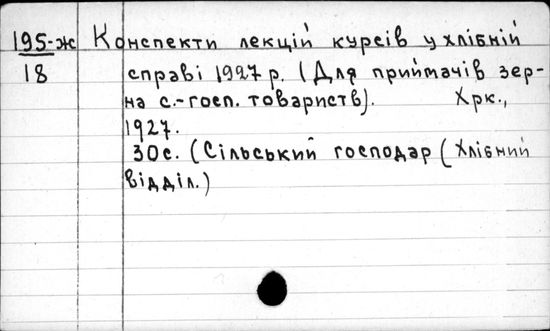 195-ж Конспекти лекцій курсів у хлібній
18 справі 1927 р. (Для приймачів зер-
на с.-госп. товариств). Хрк.,
1927.
30с. (Сільський господар (Хлібний
відділ.)